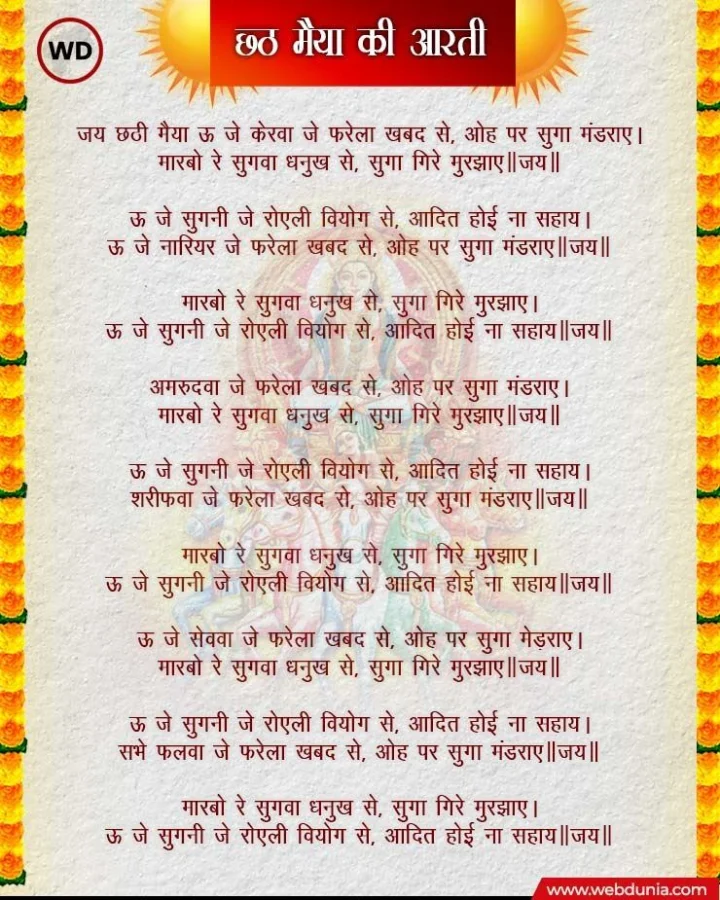 WD
छठ मैया की आरती
जय छठी मैया ऊ जे केरवा जे फरेला खबद से, ओह पर सुगा मंडराए।
मारबो रे सुगवा धनुख से, सुगा गिरे मुरझाए॥जय॥
ऊ जे सुगनी जे रोएली वियोग से, आदित होई ना सहाय।
ऊ जे नारियर जे फरेला खबद से, ओह पर सुगा मंडराए॥जय॥
मारबो रे सुगवा धनुख से, सुगा गिरे मुरझाए।
ऊ जे सुगनी जे रोएली वियोग से, आदित होई ना सहाय॥जय॥
अमरुदवा जे फरेला खबद से, ओह पर सुगा मंडराए।
मारबो रे सुगवा धनुख से, सुगा गिरे मुरझाए॥जय॥
ऊ जे सुगनी जे रोएली वियोग से, आदित होई ना सहाय।
शरीफवा जे फरेला खबद से, ओह पर सुगा मंडराए॥जय॥
मारबो रे सुगवा धनुख से, सुगा गिरे मुरझाए।
ऊ जे सुगनी जे रोएली वियोग से, आदित होई ना सहाय॥जय॥
ऊ जे सेववा जे फरेला खबद से, ओह पर सुगा मेड़राए।
मारबो रे सुगवा धनुख से, सुगा गिरे मुरझाए॥जय॥
ऊ जे सुगनी जे रोएली वियोग से, आदित होई ना सहाय।
सभे फलवा जे फरेला खबद से, ओह पर सुगा मंडराए॥जय॥
मारबो रे सुगवा धनुख से, सुगा गिरे मुरझाए।
ऊ जे सुगनी जे रोएली वियोग से, आदित होई ना सहाय॥जय॥
www.webdunia.com